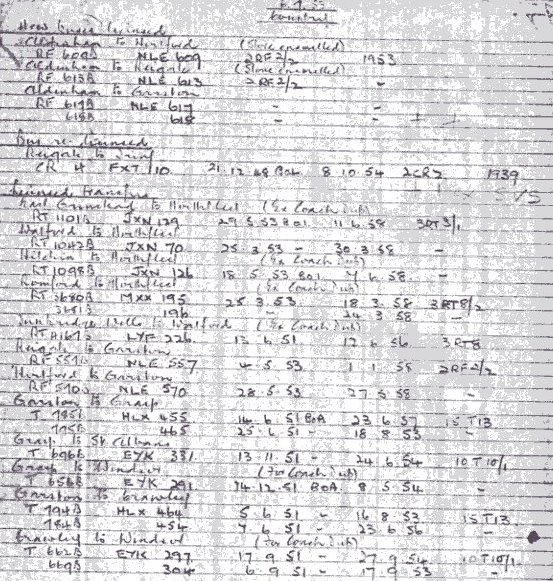 6.7.53
Country
New Buses licensed
Aldenham to Hertford (Stove enamelled)
RF 609B NLE 609 2RF2/2 1953
Aldenham to Reigate (Stove enamelled)
RF 613B NLE 613 2RF2/2 -
Aldenham to Garston
RF 617B NLE 617 - -
618B 618 - -
Bus re-licensed
Reigate to
CR 4 FXT 110 21.12.48 BOA 8.10.54 2CR2 1939
Licensed Transfers
East Grinstead to Northfleet (Ex Coach Dup)
RT 1101B JXN 129 29.5.53 BO1 11.6.58 3RT3/1
Watford to Northfleet
RT 1042B JXN 70 25.3.53 - 30.3.58 -
Hitchin to Northfleet (Ex Coach Dup)
RT 1098B JXN 126 18.5.53 BO1 7.6.58 -
Romford to Northfleet (Ex Coach Dup)
RT 3680B MXX 195 25.3.53 18.3.58 3RT8/2
3681B 196 - 24.3.58 -
Tunbridge Wells to Watford (Ex Coach Dup)
RT LYF 226 13.6.51 12.6.56 3RT8
Reigate to Garston
RF 557B NLE 557 4.5.53 1.1.58 2RF2/2
Hertford to Garston
RF 570B NLE 570 28.5.53 27.5.58 -
Garston to Grays
T 785B HLX 455 14.6.51 BOA 23.6.57 15T13
795B 465 25.6.51 - 18.8.53 -
Grays to St Albans
T 696B EYK 331 13.11.51 - 24.6.54 10T10/1
Grays to Windsor (For Coach Dup)
T 656B EYK 291 14.12.51 BOA 8.5.54 -
Garston to Crawley
T 794B HLX 464 5.6.51 - 16.8.53 15T13
784B 454 7.6.51 - 23.6.56 -
Crawley to Windsor (For Coach Dup)
T 662B EYK 297 17.9.51 - 27.9.54 10T10/1
669B 304 6.9.51 - 17.9.53 -